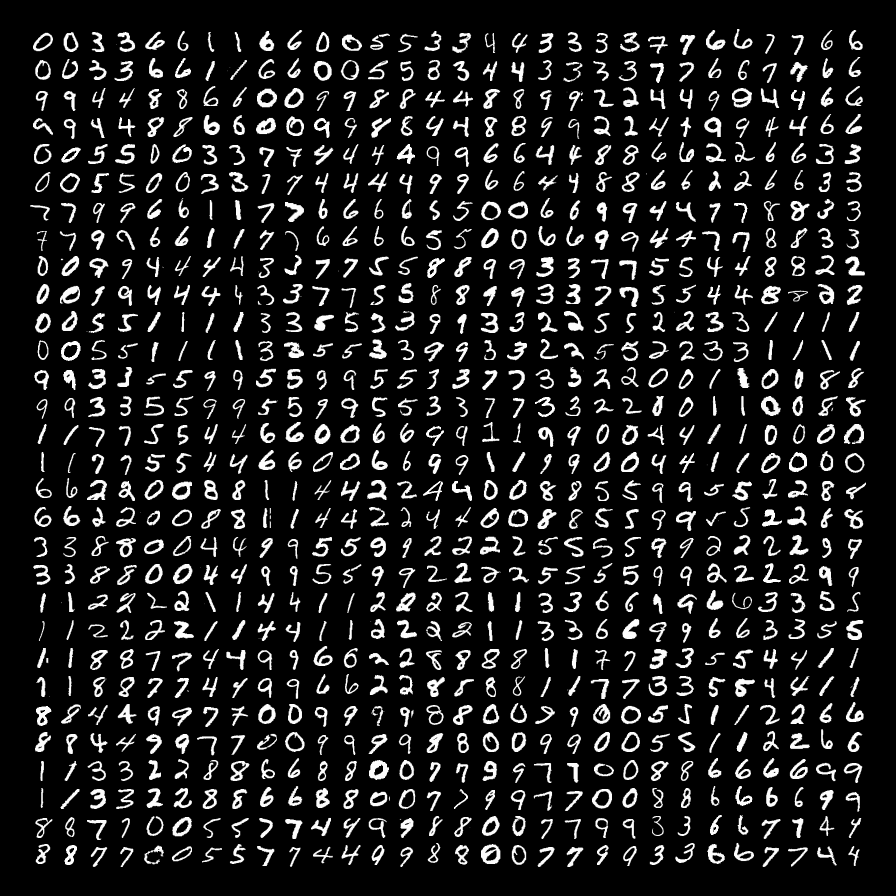 0 0 3 3 6 6 1 1 6 6 0 0 5 5 3 3 4 4 3 3 3 3 7 7 6 6 7 7 6 6
0 0 3 3 6 6 1 1 6 6 0 0 5 5 3 3 4 4 3 3 3 3 7 7 6 6 7 7 6 6
9 9 4 4 8 8 6 6 0 0 9 9 8 8 4 4 8 8 9 9 2 2 4 4 9 9 4 4 6 6
9 9 4 4 8 8 6 6 0 0 9 9 8 8 4 4 8 8 9 9 2 2 4 4 9 9 4 4 6 6
0 0 5 5 0 0 3 3 7 7 4 4 4 4 9 9 6 6 4 4 8 8 6 6 2 2 6 6 3 3
0 0 5 5 0 0 3 3 7 7 4 4 4 4 9 9 6 6 4 4 8 8 6 6 2 2 6 6 3 3
7 7 9 9 6 6 1 1 7 7 6 6 6 6 5 5 0 0 6 6 9 9 4 4 7 7 8 8 3 3
7 7 9 9 6 6 1 1 7 7 6 6 6 6 5 5 0 0 6 6 9 9 4 4 7 7 8 8 3 3
0 0 9 9 4 4 4 4 3 3 7 7 5 5 8 8 9 9 3 3 7 7 5 5 4 4 8 8 2 2
0 0 9 9 4 4 4 4 3 3 7 7 5 5 8 8 9 9 3 3 7 7 5 5 4 4 8 8 2 2
0 0 5 5 1 1 1 1 3 3 5 5 3 3 9 9 3 3 2 2 5 5 2 2 3 3 1 1 1 1
0 0 5 5 1 1 1 1 3 3 5 5 3 3 9 9 3 3 2 2 5 5 2 2 3 3 1 1 1 1
9 9 3 3 5 5 9 9 5 5 9 9 5 5 3 3 7 7 3 3 2 2 0 0 1 1 0 0 8 8
9 9 3 3 5 5 9 9 5 5 9 9 5 5 3 3 7 7 3 3 2 2 0 0 1 1 0 0 8 8
1 1 7 7 5 5 4 4 6 6 0 0 6 6 9 9 1 1 9 9 0 0 4 4 1 1 0 0 0 0
1 1 7 7 5 5 4 4 6 6 0 0 6 6 9 9 1 1 9 9 0 0 4 4 1 1 0 0 0 0
6 6 2 2 0 0 8 8 1 1 4 4 2 2 4 4 0 0 8 8 5 5 9 9 5 5 2 2 8 8
6 6 2 2 0 0 8 8 1 1 4 4 2 2 4 4 0 0 8 8 5 5 9 9 5 5 2 2 8 8
3 3 8 8 0 0 4 4 9 9 5 5 9 9 2 2 2 2 5 5 5 5 9 9 2 2 2 2 9 9
3 3 8 8 0 0 4 4 9 9 5 5 9 9 2 2 2 2 5 5 5 5 9 9 2 2 2 2 9 9
1 1 2 2 2 2 1 1 4 4 1 1 2 2 2 2 1 1 3 3 6 6 9 9 6 6 3 3 5 5
1 1 2 2 2 2 1 1 4 4 1 1 2 2 2 2 1 1 3 3 6 6 9 9 6 6 3 3 5 5
1 1 8 8 7 7 4 4 9 9 6 6 2 2 8 8 8 8 1 1 7 7 3 3 5 5 4 4 1 1
1 1 8 8 7 7 4 4 9 9 6 6 2 2 8 8 8 8 1 1 7 7 3 3 5 5 4 4 1 1
8 8 4 4 9 9 7 7 0 0 9 9 9 9 8 8 0 0 9 9 0 0 5 5 1 1 2 2 6 6
8 8 4 4 9 9 7 7 0 0 9 9 9 9 8 8 0 0 9 9 0 0 5 5 1 1 2 2 6 6
1 1 3 3 2 2 8 8 6 6 8 8 0 0 7 7 9 9 7 7 0 0 8 8 6 6 6 6 9 9
1 1 3 3 2 2 8 8 6 6 8 8 0 0 7 7 9 9 7 7 0 0 8 8 6 6 6 6 9 9
8 8 7 7 0 0 5 5 7 7 4 4 9 9 8 8 0 0 7 7 9 9 3 3 6 6 7 7 4 4
8 8 7 7 0 0 5 5 7 7 4 4 9 9 8 8 0 0 7 7 9 9 3 3 6 6 7 7 4 4